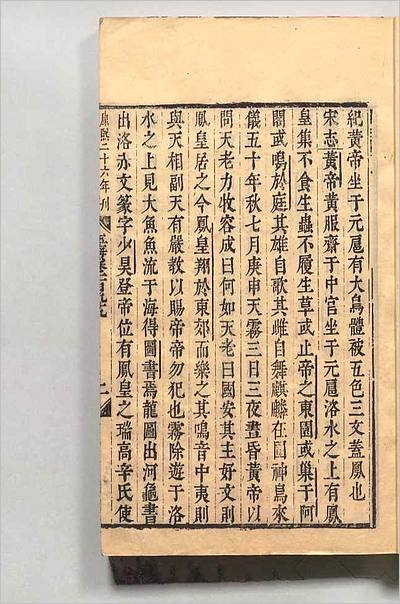 紀黃帝坐于元扈有大鳥體被五色三文蓋鳳也
宋志黃帝黃服齋于中宮坐于元扈洛水之上有鳳
皇集不食生蟲不履生草或止帝之東園或巢于阿
閣或鳴於庭其雄自歌其雌自舞麒麟在囿神鳥來
儀五十年秋七月庚申天霧三日三夜晝昏黃帝以
問天老力牧容成曰何如天老曰國安其主好文則
鳳皇居之今鳳皇翔於東郊而樂之其鳴音中夷則
與天相副天有嚴教以賜帝帝勿犯也霧除遊于洛
水之上見大魚魚流于海得圖書焉龍圖出河龜書
出洛赤文篆字少昊登帝位有鳳皇之瑞高辛氏使
康熙二十六年刊
玉海卷一百九十九
二